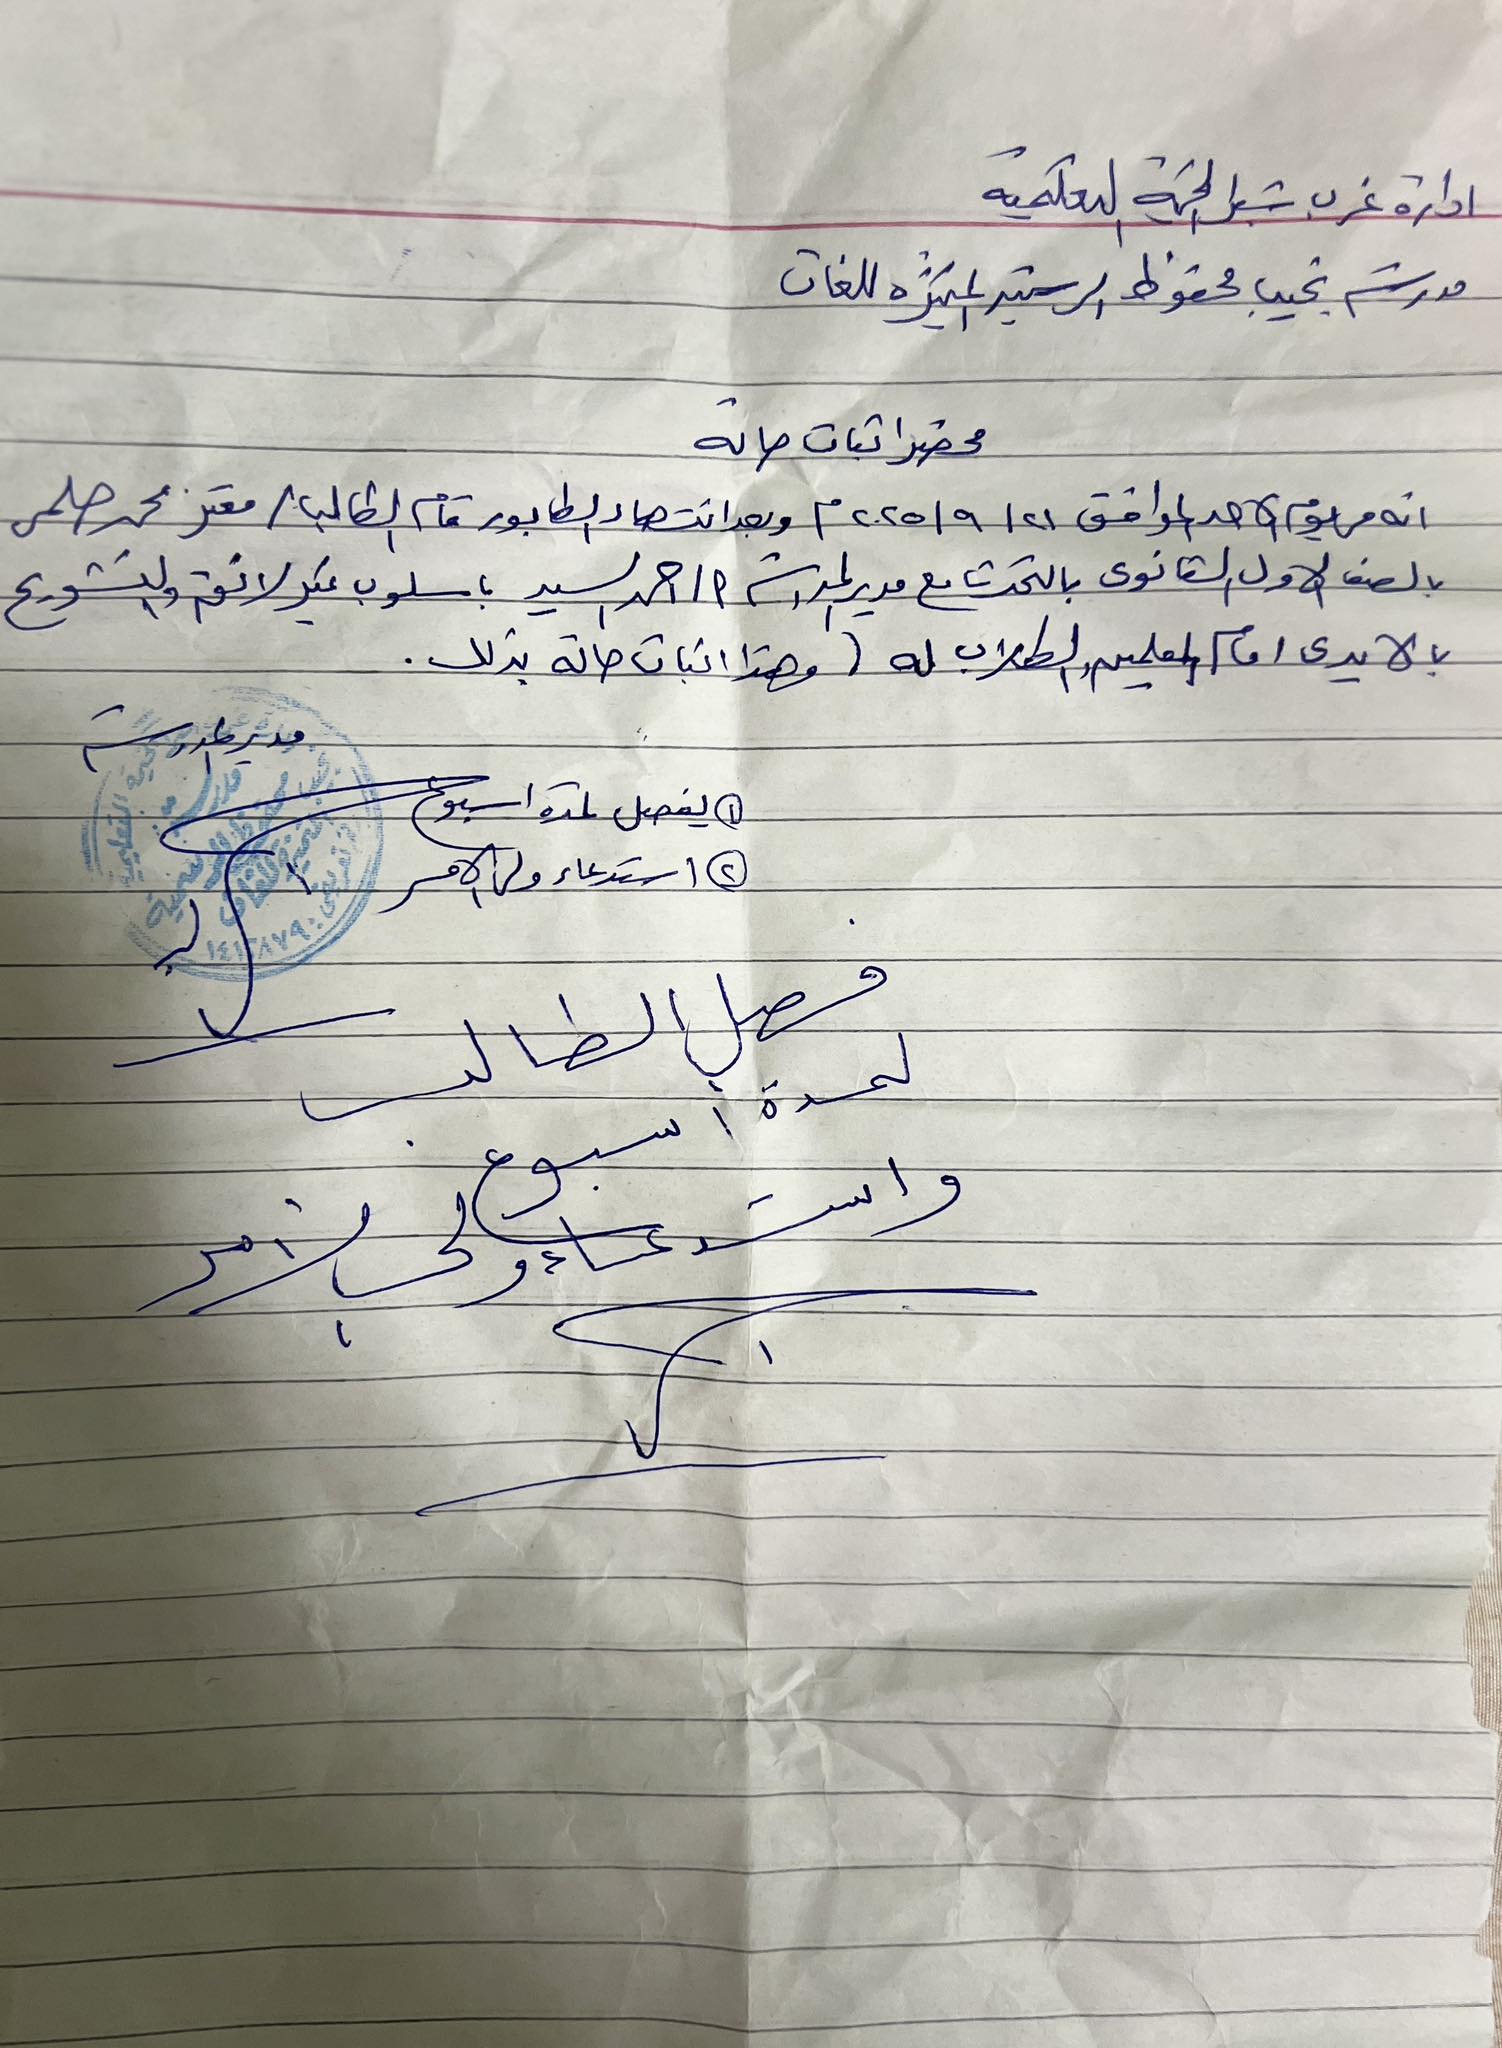 ادارة غرب شبرا الخيمة التعليمية
مدرسة نجيب محفوظ الرسمية المتميزة للغات
محضر اثبات حالة
انه فى يوم الاحد الموافق ٢١/٩/٢٠٢٥م وبعد انتهاء الطابور قام الطالب/ معتز محمد حلمى
بالصف الاول الثانوى بالتحدث مع مدير المدرسة أ/ احمد السيد باسلوب غير لائق والتشويح
بالايدى امام المعلمين والطلاب له ( وهذا اثبات حالة بذلك .
مدير المدرسة
① يفصل لمدة اسبوع
② استدعاء ولى الامر
فصل الطالب
لمدة أسبوع
واستدعاء ولي الأمر